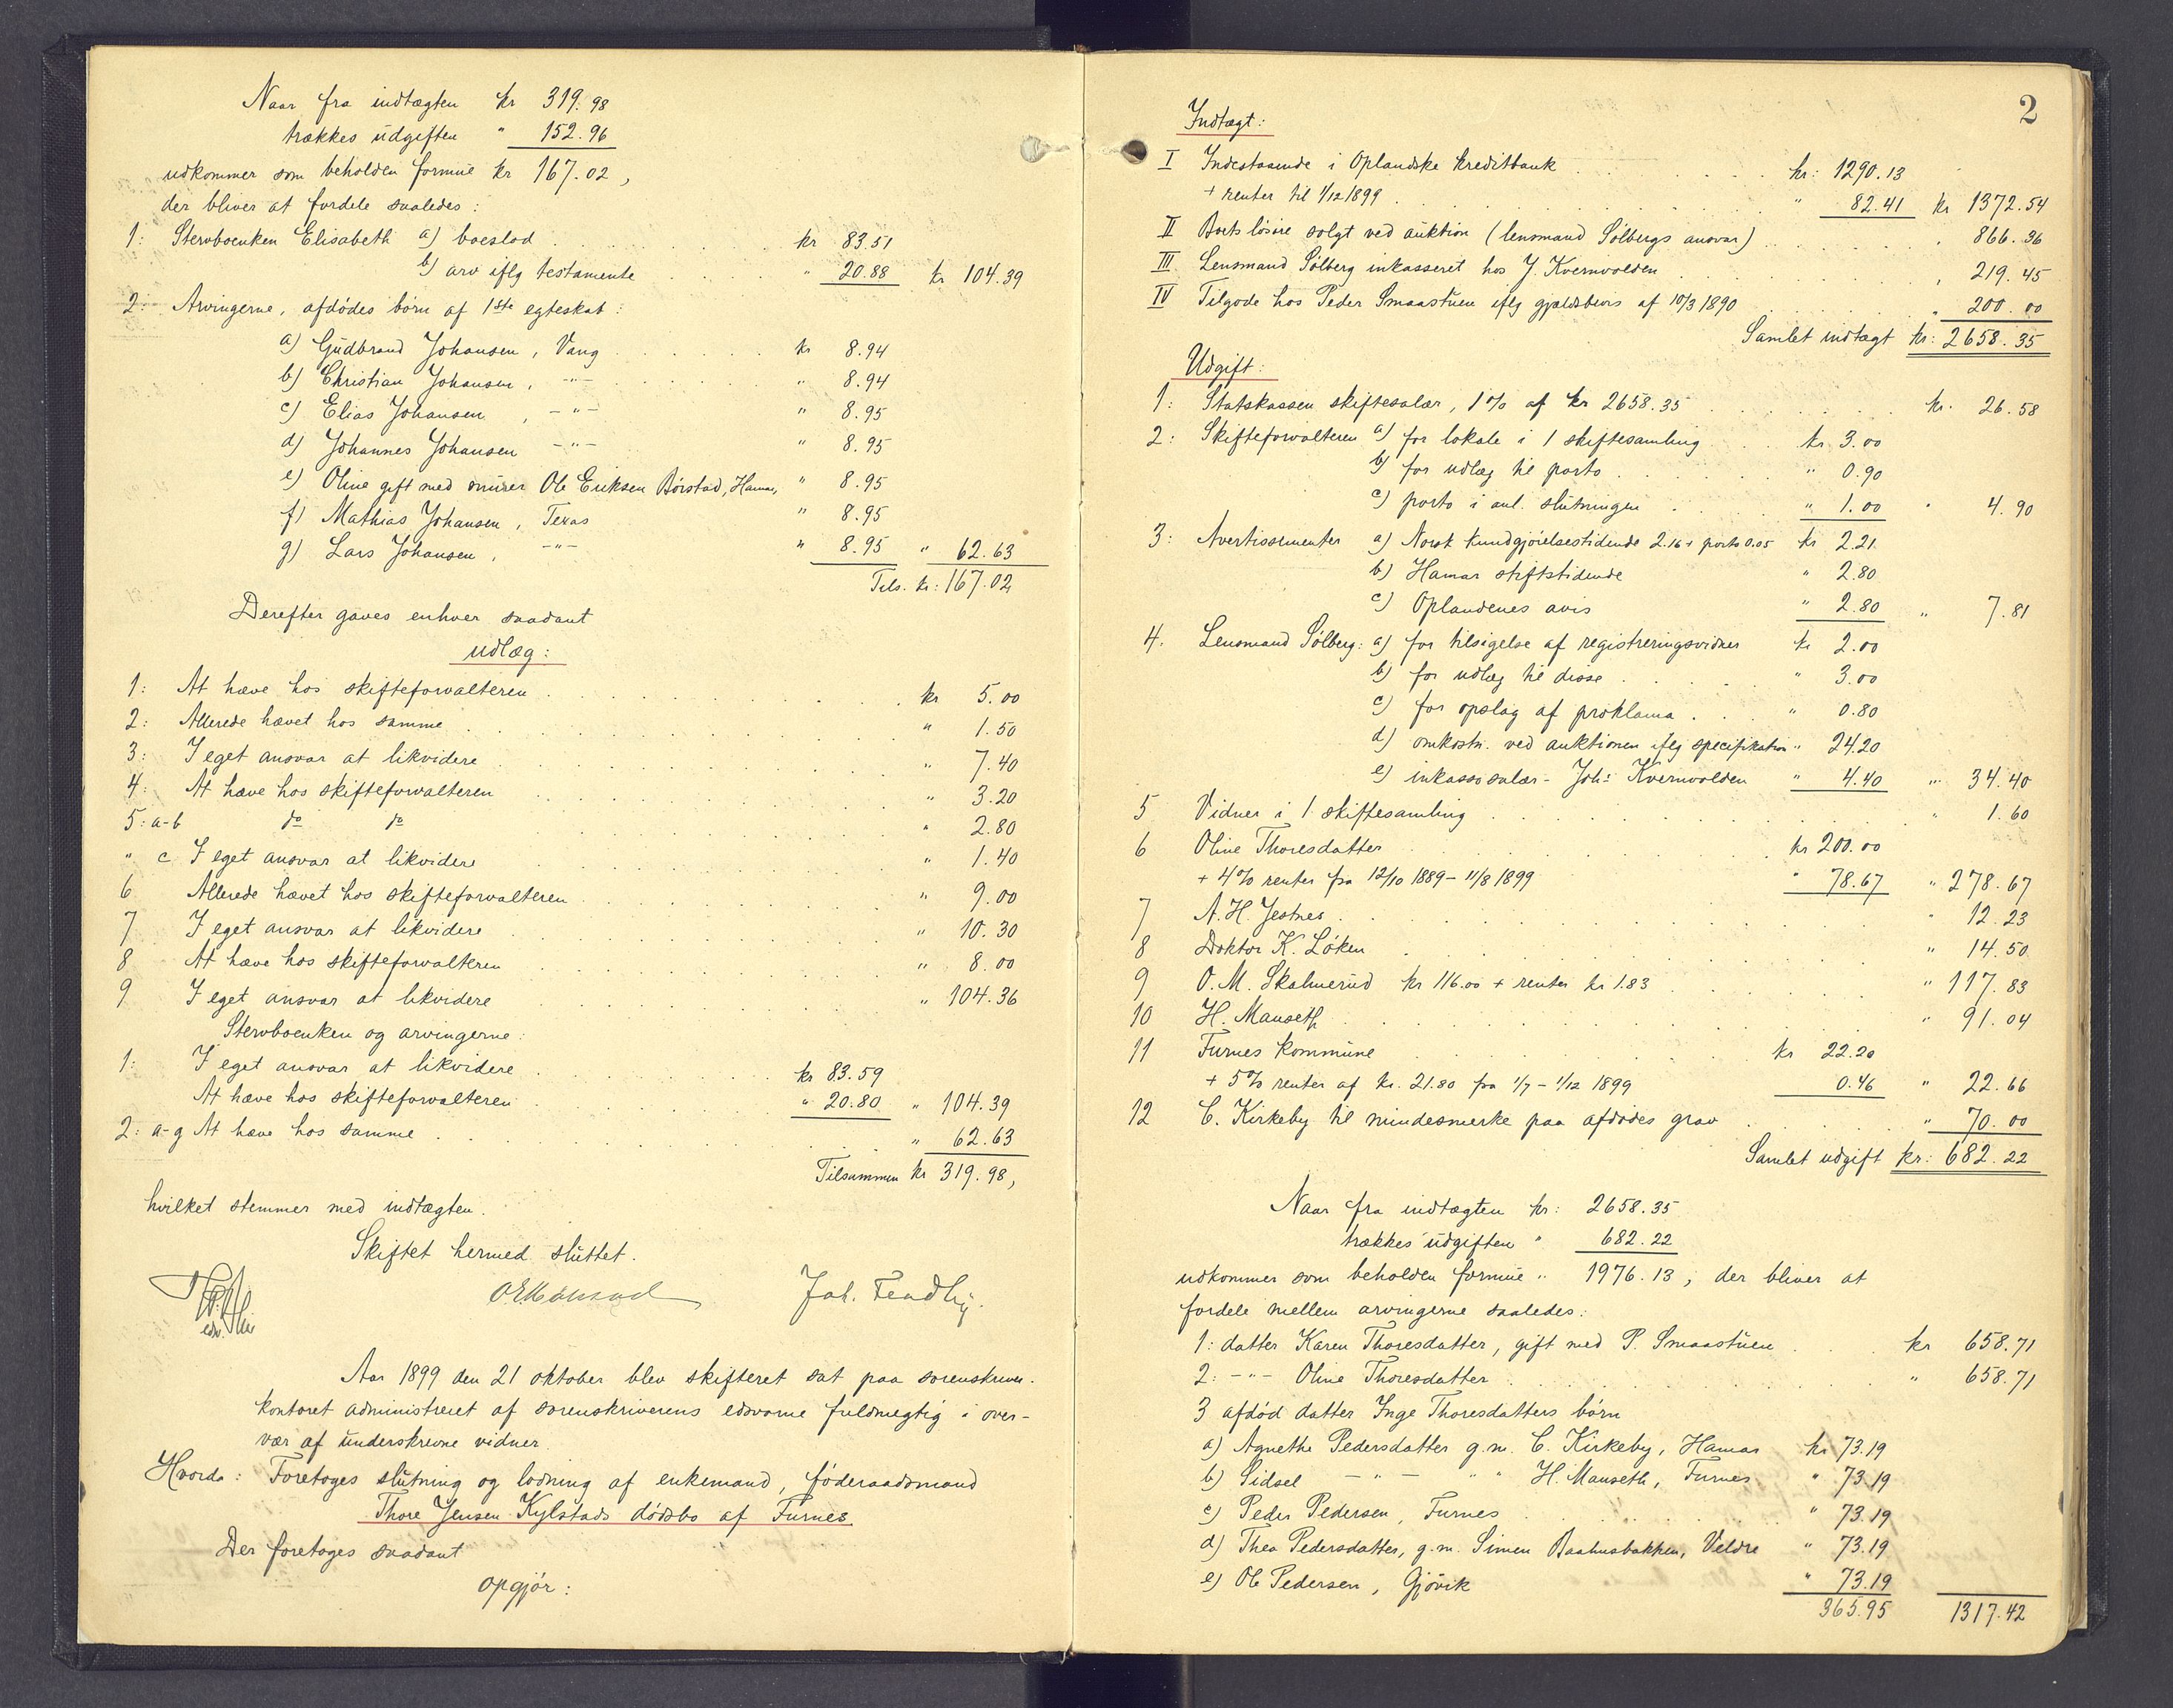 Naar fra indtægten kr 319.98
trækkes udgiften " 152.96
udkommer som beholden formue kr 167.02,
der bliver at fordele saaledes:
1: Stervboenken Elisabeth a) boeslod kr 83.51
b) arv iflg testamente " 20.88 kr 104.39
2: Arvingerne, afdødes børn af 1ste egteskab:
a) Gudbrand Johansen, Vang kr 8.94
b) Christian Johansen, -"- " 8.94
c) Elias Johansen, -"- " 8.95
d) Johannes Johansen -"- " 8.95
e) Oline gift med murer Ole Eriksen Børstad, Hamar, " 8.95
f) Mathias Johansen, Texas " 8.95
g) Lars Johansen, -"- " 8.95 " 62.63
Tils. kr: 167.02
Derefter gaves enhver saadant
udlæg:
1: At hæve hos skifteforvalteren kr 5.00
2: Allerede hævet hos samme " 1.50
3: I eget ansvar at likvidere " 7.40
4: At hæve hos skifteforvalteren " 3.20
5: a-b do do " 2.80
" c I eget ansvar at likvidere " 1.40
6 Allerede hævet hos skifteforvalteren " 9.00
7 I eget ansvar at likvidere " 10.30
8 At hæve hos skifteforvalteren " 8.00
9 I eget ansvar at likvidere " 104.36
Stervboenken og arvingerne:
1: I eget ansvar at likvidere kr 83.59
At hæve hos skifteforvalteren " 20.80 " 104.39
2: a-g At hæve hos samme " 62.63
Tilsammen kr 319.98,
hvilket stemmer med indtægten.
Skiftet hermed sluttet.
Joh. Fendby.
Aar 1899 den 21 oktober blev skifteret sat paa sorenskriver-
kontoret administreret af sorenskriverens edsvorne fuldmegtig i over-
vær af underskrevne vidner.
Hvorda: Foretoges slutning og lodning af enkemand, føderaadsmand
Thore Jensen Kylstads dødsbo af Furnes.
Der foretoges saadant
opgjør:
2
Indtægt:
I Indestaaende i Oplandske kreditbank kr: 1290.13
+ renter til 1/12 1899 " 82.41 kr 1372.54
II Boets løsøre solgt ved auktion (lensmand Sølbergs ansvar) " 866.36
III Lensmand Sølberg inkasseret hos J. Kvernvolden " 219.45
IV Tilgode hos Peder Smaastuen iflg gjældsbevis af 10/3 1890 " 200.00
Samlet indtægt kr: 2658.35
Udgift:
1: Statskassen skiftesalær, 1% af kr 2658.35 kr. 26.58
2: Skifteforvalteren a) for lokale i 1 skiftesamling kr. 3.00
b) for udlæg til porto " 0.90
c) porto i anl. slutningen " 1.00 " 4.90
3: Avertissementer a) Norsk kundgjørelsestidende 2.16 + porto 0.05 kr 2.21
b) Hamar stiftstidende " 2.80
c) Oplandenes avis " 2.80 " 7.81
4. Lensmand Sølberg: a) for tilsigelse af registreringsvidner kr 2.00
b) for udlæg til disse " 3.00
c) for opslag af proklama " 0.80
d) omkostn. ved auktionen iflg specifikation " 24.20
e) inkassosalær - Joh: Kvernvolden " 4.40 " 34.40
5 Vidner i 1 skiftesamling " 1.60
6 Oline Thoresdatter kr 200.00
+ 4% renter fra 12/10 1889 - 11/8 1899 " 78.67 " 278.67
7 A. H. Jestnes " 12.23
8 Doktor K. Løken " 14.50
9 O. M. Skalmerud kr 116.00 + renter kr 1.83 " 117.83
10 H. Mauseth " 91.04
11 Furnes kommune kr 22.20
+ 5% renter af kr. 21.80 fra 1/7 - 1/12 1899 0.46 " 22.66
12 C. Kirkeby til mindesmerke paa afdødes grav " 70.00
Samlet udgift kr: 682.22
Naar fra indtægten kr: 2658.35
trækkes udgiften " 682.22
udkommer som beholden formue " 1976.13, der bliver at
fordele mellem arvingerne saaledes:
1: datter Karen Thoresdatter, gift med P. Smaastuen kr 658.71
2: -"- Oline Thoresdatter " 658.71
3 afdød datter Inge Thoresdatters børn
a) Agnethe Pedersdatter g.m. C. Kirkeby, Hamar kr 73.19
b) Sidsel -"- " " H. Mauseth, Furnes " 73.19
c) Peder Pedersen, Furnes " 73.19
d) Thea Pedersdatter, g.m. Simen Baahusbakken, Veldre " 73.19
e) Ole Pedersen, Gjøvik " 73.19
365.95 1317.42